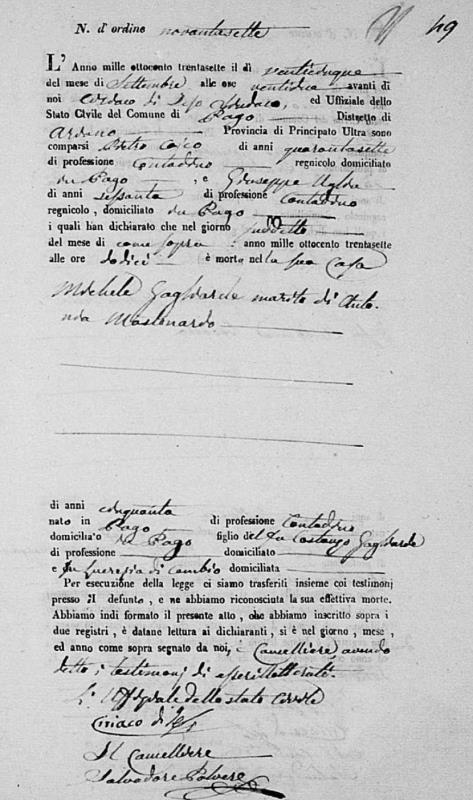 N. d'ordine novantasette
49
L' Anno mille ottocento trentasette il dì venticinque
del mese di Settembre alle ore ventidue avanti di
noi Ciriaco di Sindaco, ed Uffiziale dello
Stato Civile del Comune di Pago Distretto di
Ariano Provincia di Principato Ultra sono
comparsi Pietro di anni quarantasette
di professione Contadino regnicolo domiciliato
in Pago , e Giuseppe
di anni sessanta di professione Contadino
regnicolo, domiciliato in Pago
i quali han dichiarato che nel giorno suddetto
del mese di come sopra : anno mille ottocento trentasette
alle ore dodici è morto nella sua Casa
Michele Gagliarde marito di Anto
nia Mastonardo
di anni cinquanta
nato in Pago di professione Contadino
domicilia'o in Pago figlio del fu Costanzo Gagliarde
di professione domiciliato
e fu Lucrezia di Cambio domiciliata
Per esecuzione della legge ci siamo trasferiti insieme coi testimonj
presso il defunto, e ne abbiamo riconosciuta la sua effettiva morte.
Abbiamo indi formato il presente atto, che abbiamo inscritto sopra i
due registri, è datane lettura ai dichiaranti, si è nel giorno, mese,
ed anno come sopra segnato da noi, e Cancelliere, avendo
detto i testimonj di essere illetterati.
L'Uffiziale dello stato Civile
Ciriaco di
Il Cancelliere
Salvadore Polvere